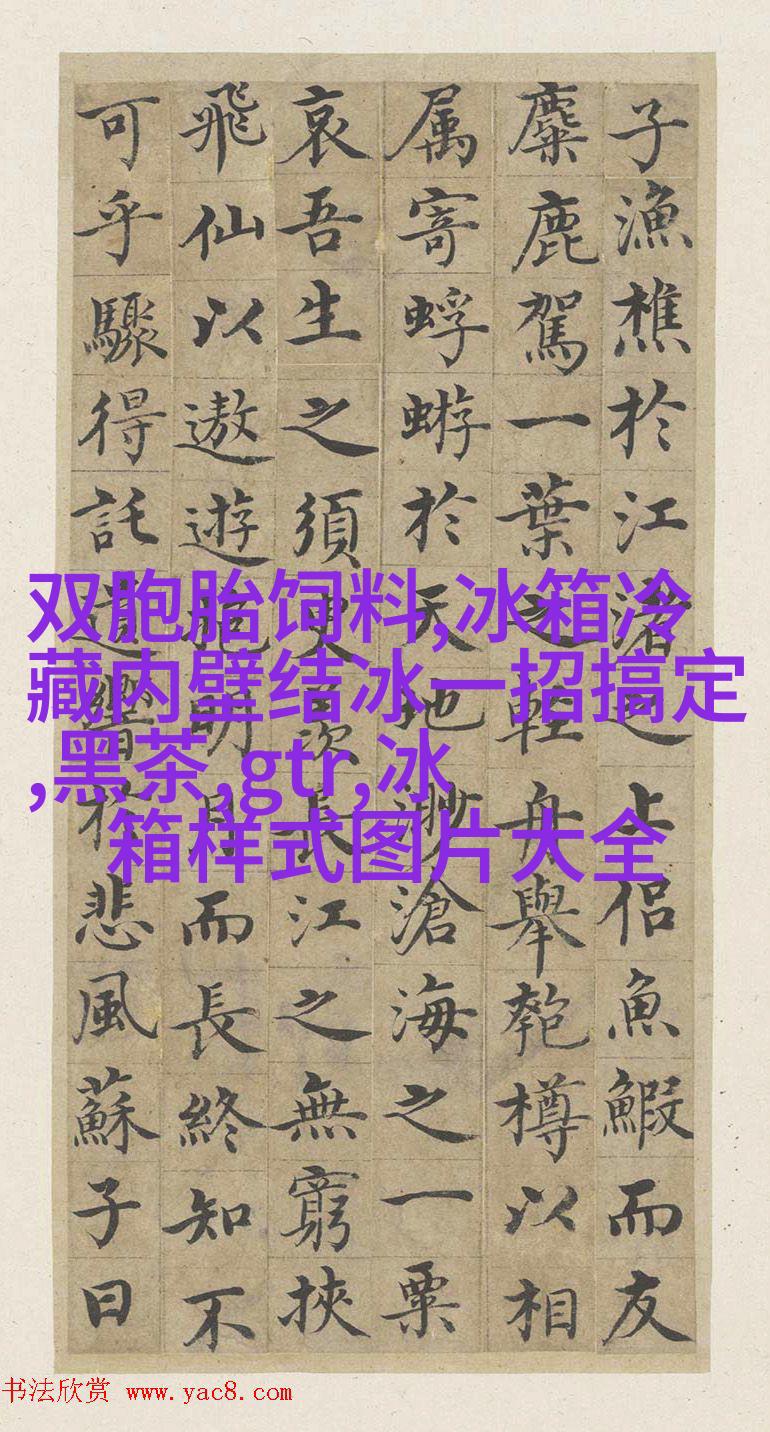 子漁樵於江渚之上侶魚鰕而友
麋鹿駕一葉之輕舟舉匏樽以相
属寄蜉蝣於天地渺滄海之一粟
哀吾生之須臾羨長江之無窮挾
飛仙以遨遊抱明月而長終知不
可乎驟得託遺響於悲風蘇子曰
双胞胎饲料,冰箱冷
藏内壁结冰一招搞定
,黑茶,gtr,冰
箱样式图片大全
书法欣赏 www.yac8.com